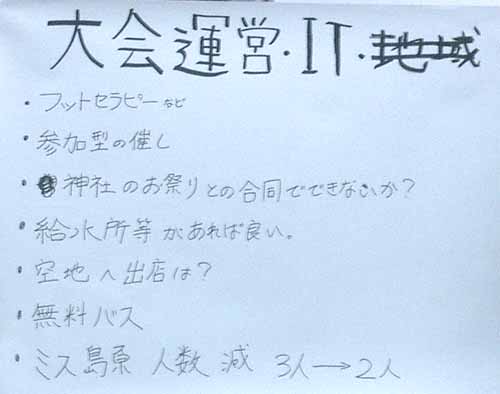 大会運営・IT・地域
・フットセラピーなど
・参加型の催し
・神社のお祭りとの合同でできないか？
・給水所等があれば良い。
・空地へ出店は？
・無料バス
・ミス島原 人数 減 3人→2人